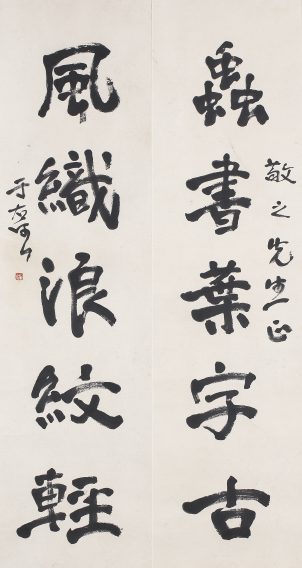 敬之先生正
蟲書葉字古
風織浪紋輕
于右任